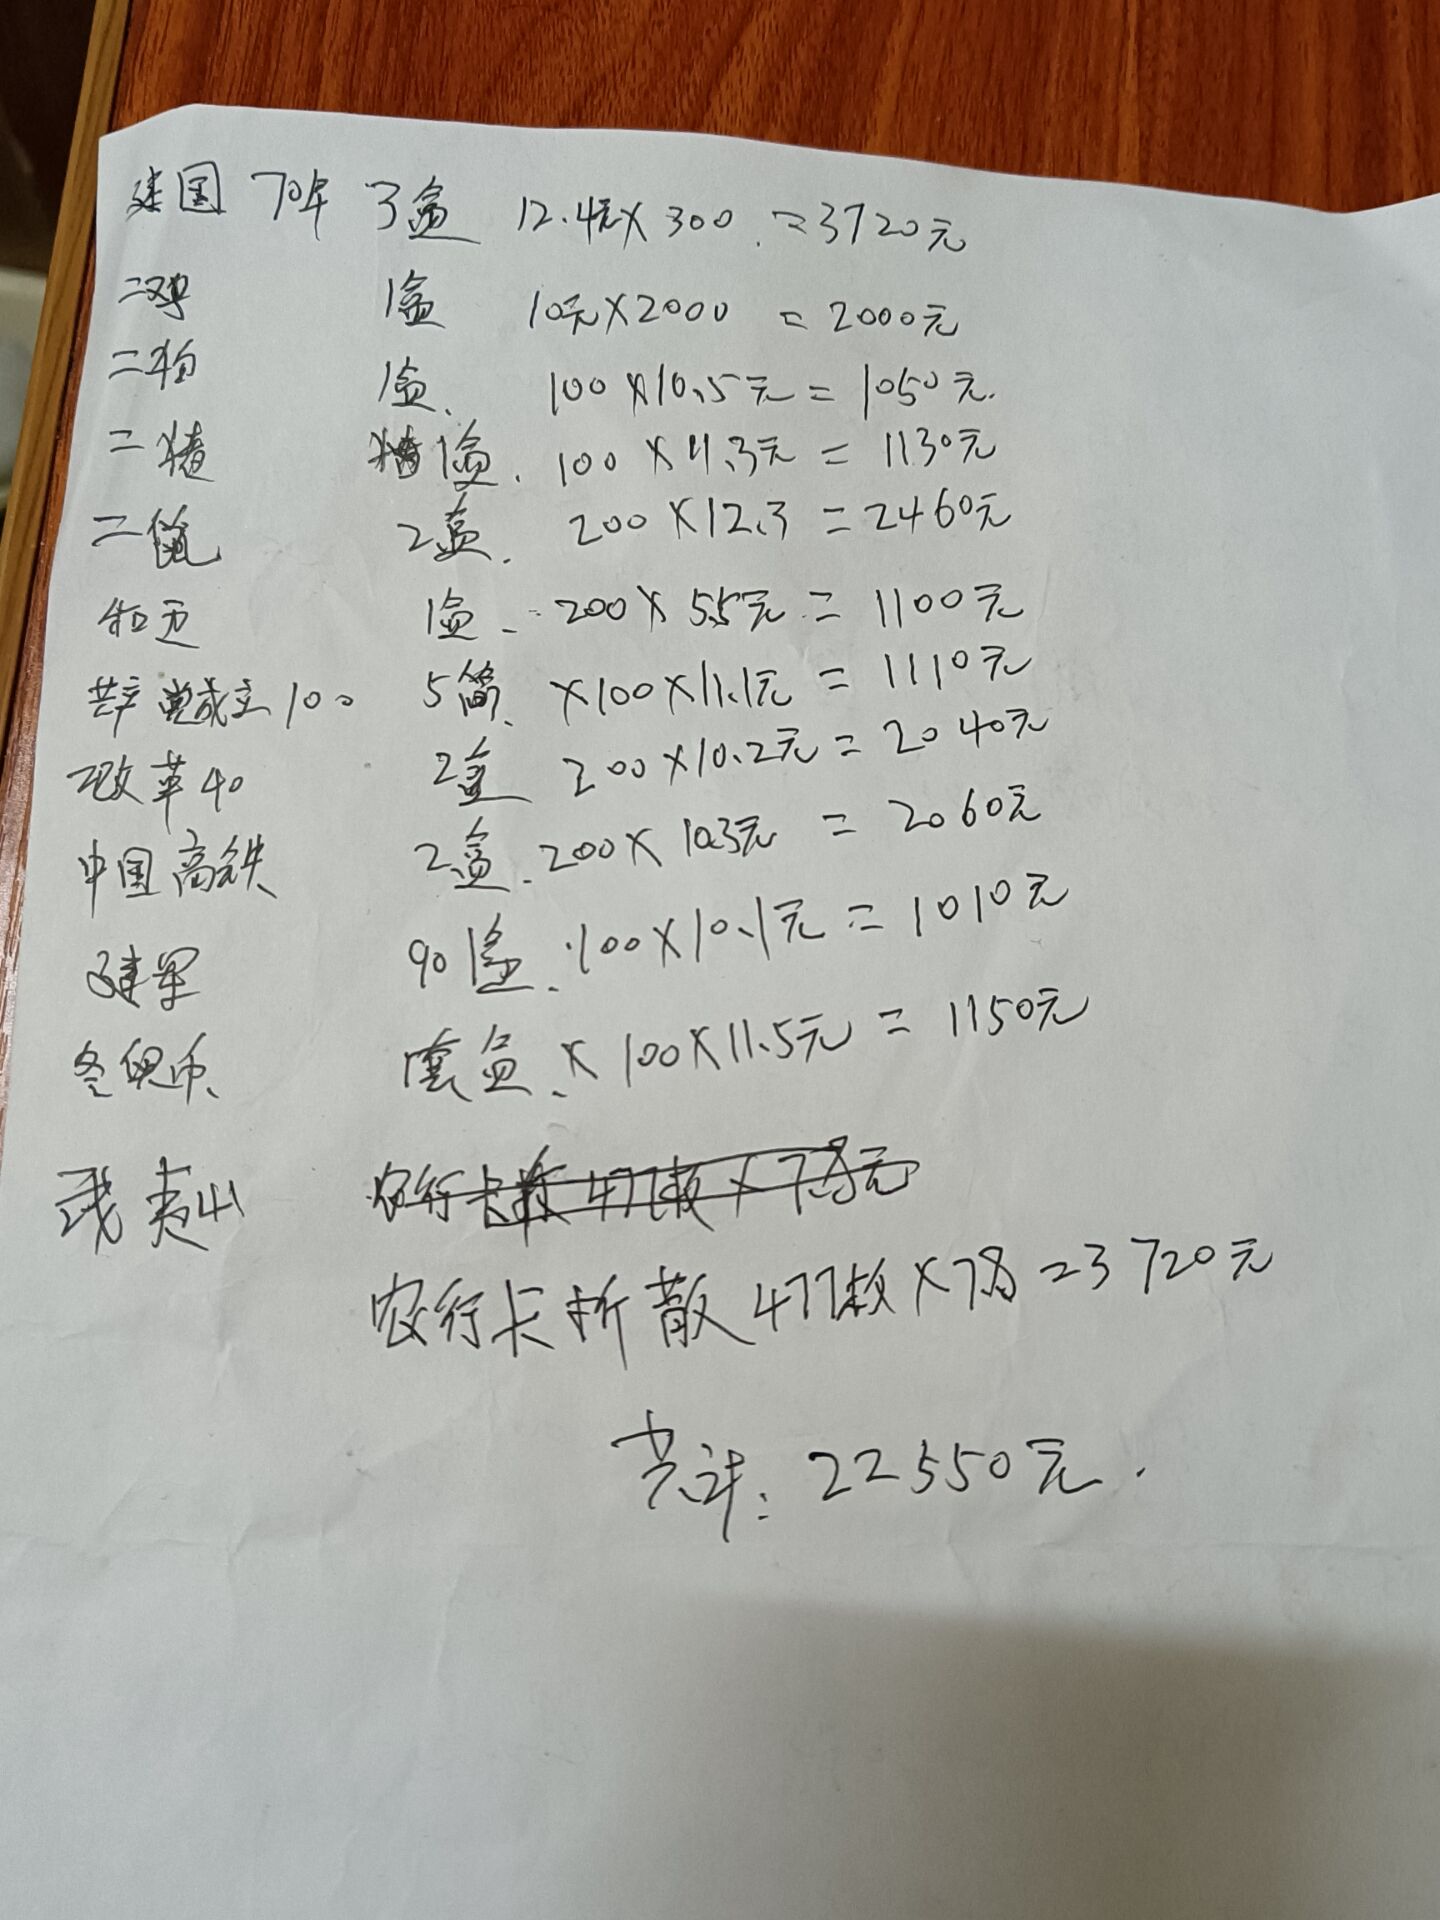 建国 70年 3盒 12.4元×300.=3720元
二鸡 1盒 10元×2000 =2000元
二狗 1盒. 100×10.5元=1050元.
二猪 1盒. 100×11.3元=1130元
二 2盒. 200×12.3=2460元
和 1盒. 200×5.5元=1100元
共产党成立100 5筒. ×100×11.1元=1110元
改革40 2盒 200×10.2元=2040元
中国高铁 2盒.200×10.3元=2060元
建军 90 1盒.100×10.1元=1010元
冬奥币. 1套盒.×100×11.5元=1150元
武夷山 农行卡散477枚×7.8元
农行卡折散477枚×7.8=3720元
共计:22550元.